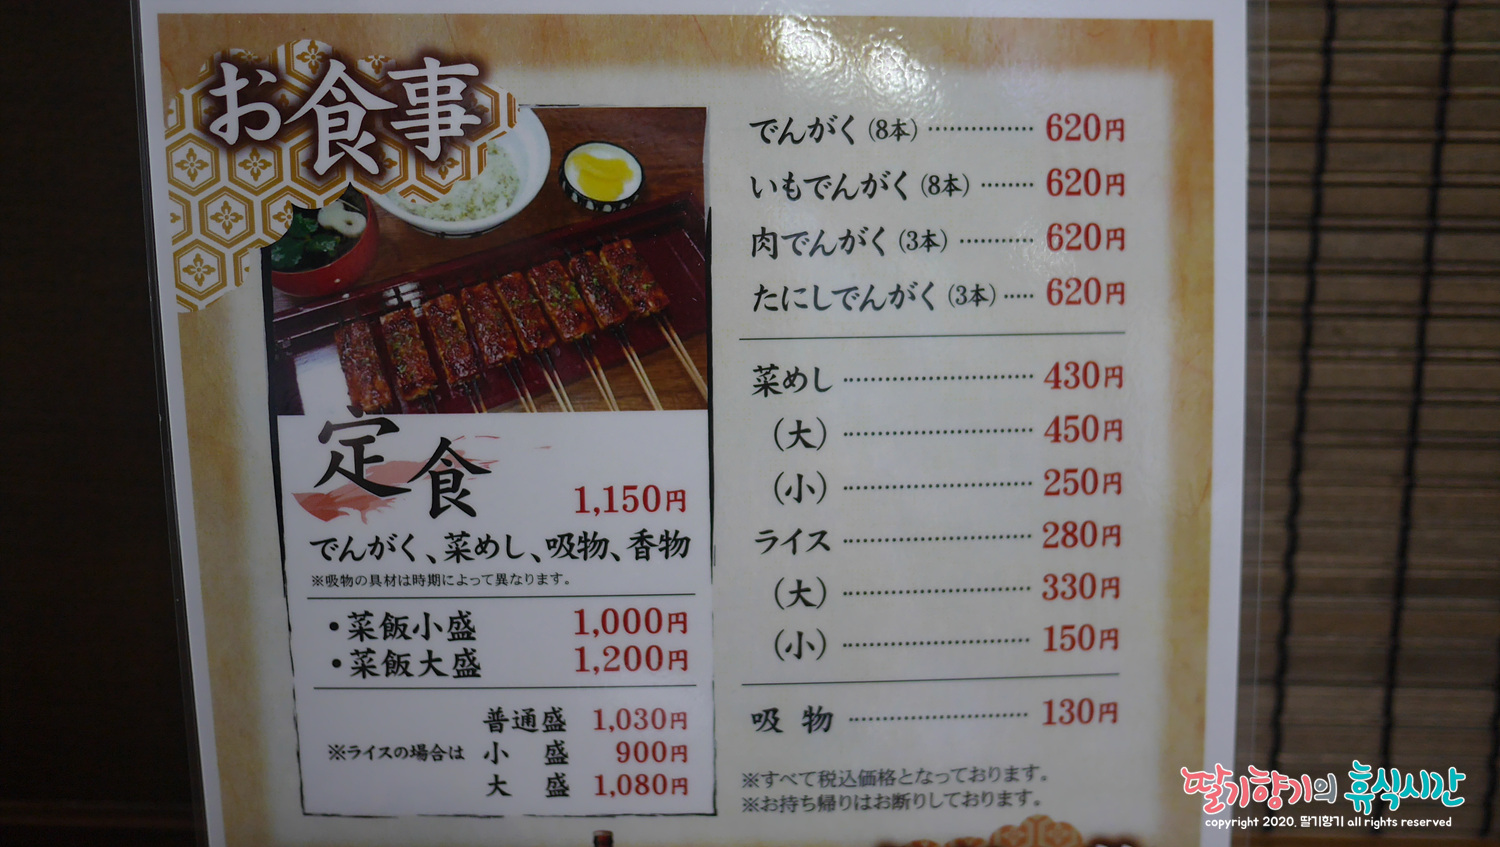 お食事
定食
1,150円
でんがく、菜めし、吸物、香物
※吸物の具材は時期によって異なります。
・菜飯小盛 1,000円
・菜飯大盛 1,200円
普通盛 1,030円
※ライスの場合は 小盛 900円
大盛 1,080円
でんがく(8本) 620円
いもでんがく(8本) 620円
肉でんがく(3本) 620円
たにしでんがく(3本) 620円
菜めし 430円
(大) 450円
(小) 250円
ライス 280円
(大) 330円
(小) 150円
吸物 130円
※すべて税込価格となっております。
※お持ち帰りはお断りしております。
딸기향기의 휴식시간
copyright 2020. 딸기향기 all rights reserved